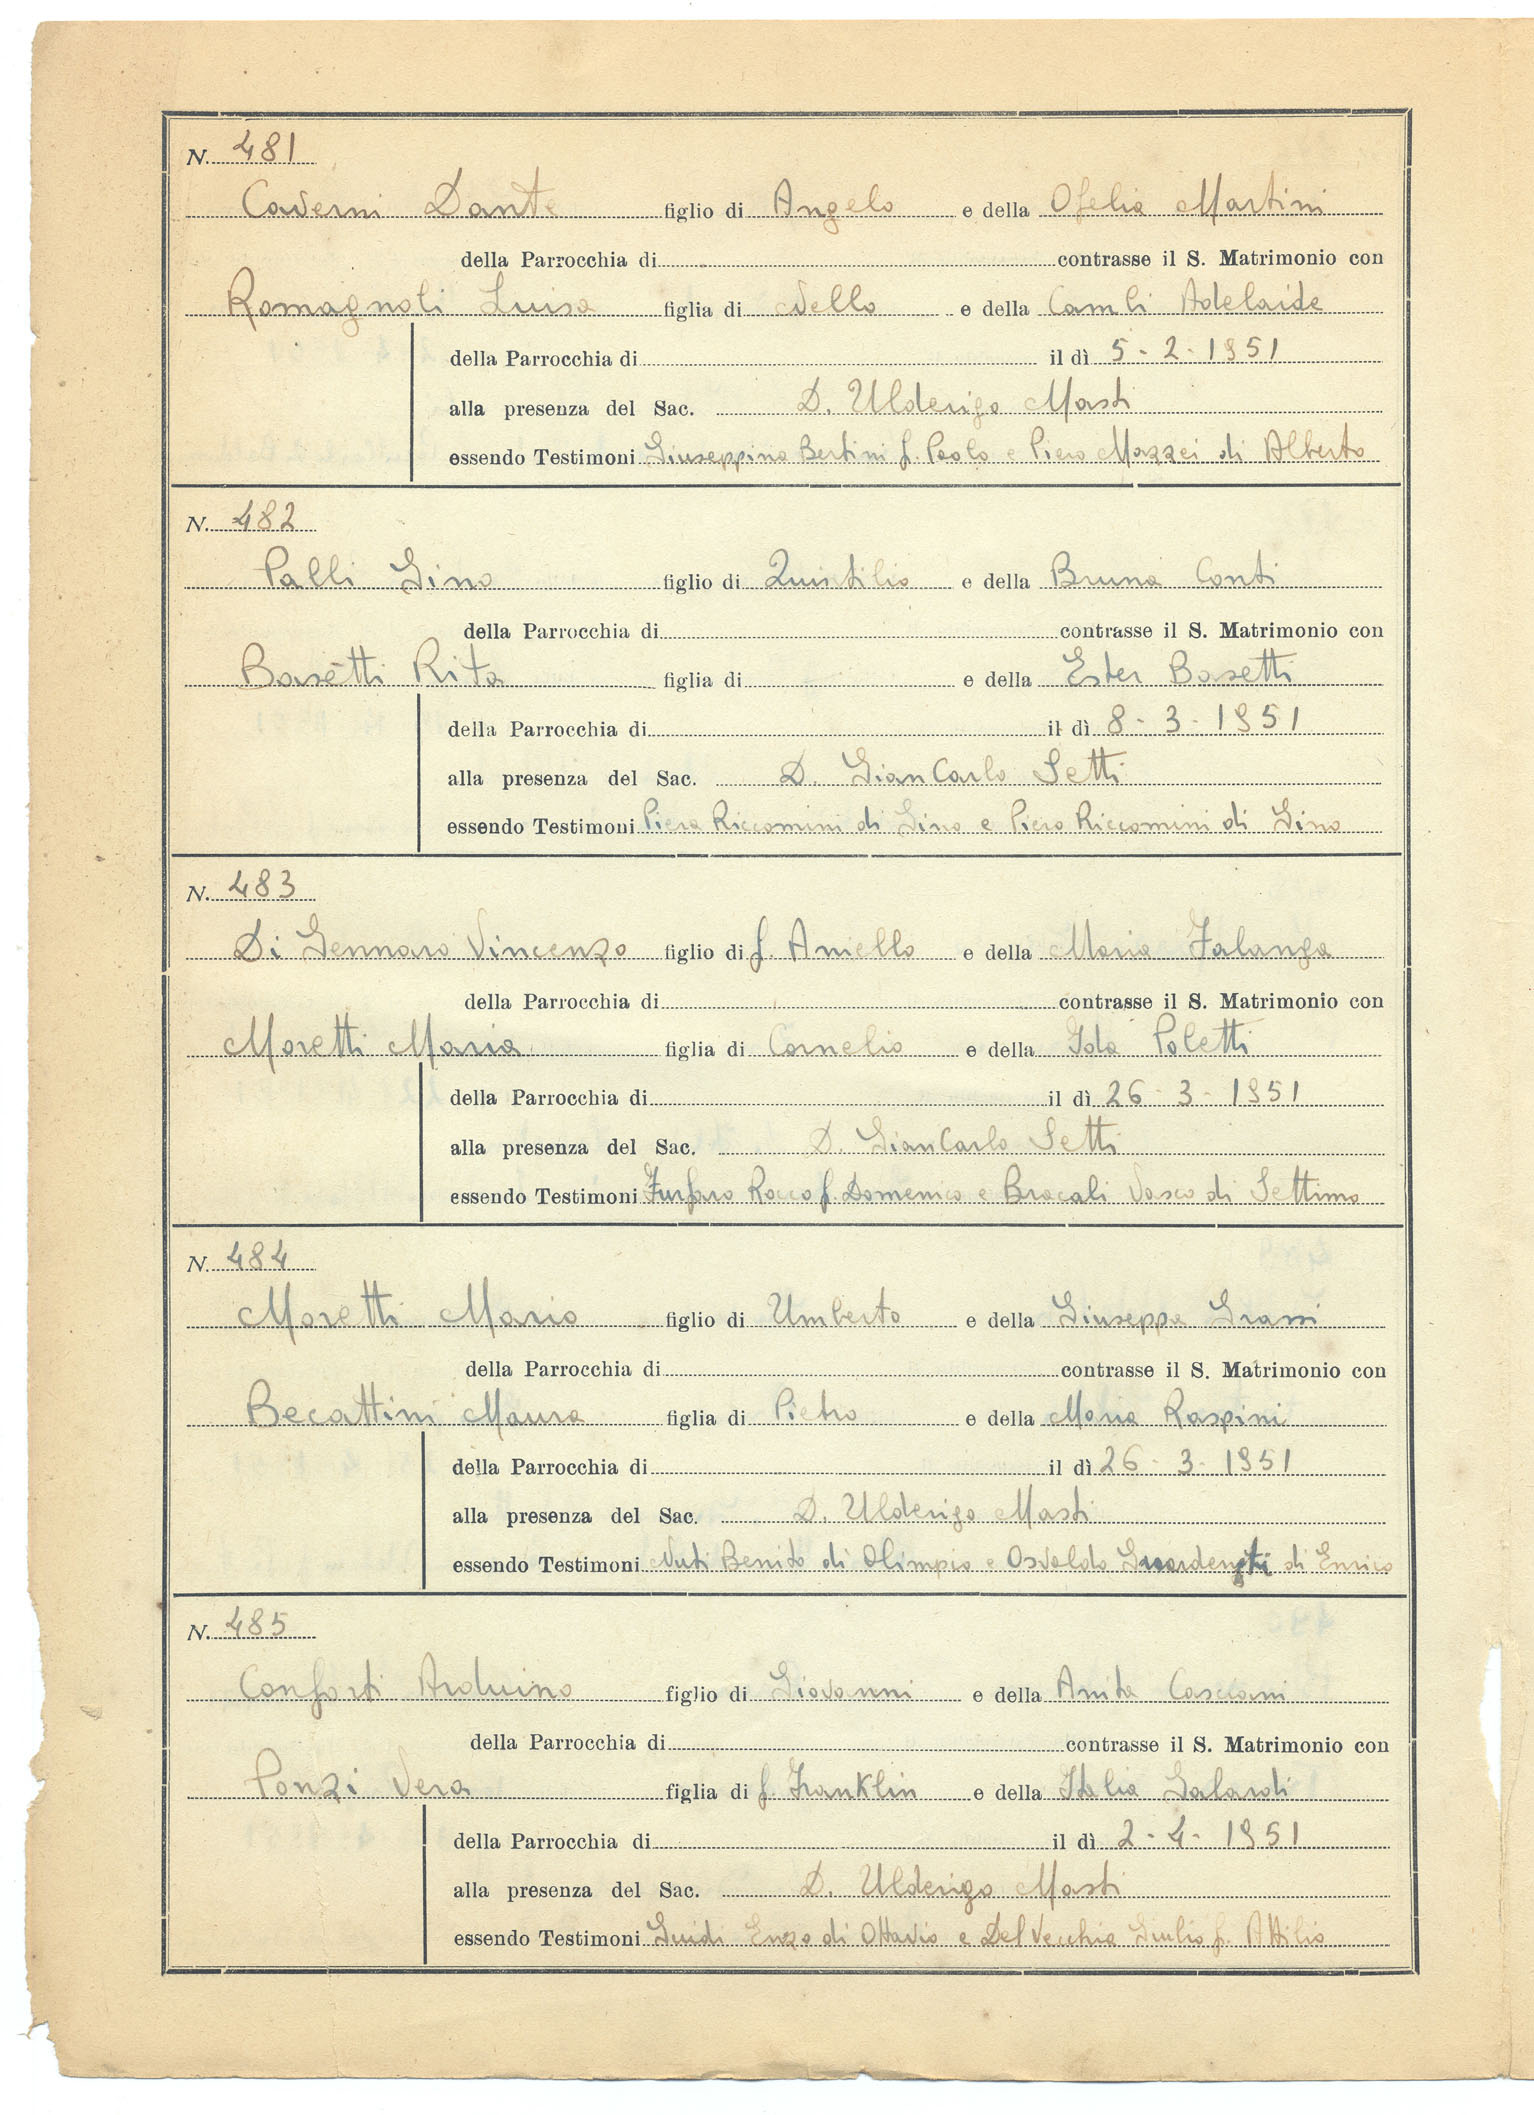 N. 481
Caverni Dante figlio di Angelo e della Ofelia Martini
della Parrocchia di contrasse il S. Matrimonio con
Romagnoli Luisa figlia di Nello e della Cambi Adelaide
della Parrocchia di il dì 5-2-1951
alla presenza del Sac. D. Ulderigo Masti
essendo Testimoni Giuseppina Bertini f. Paolo e Piero Mazzei di Alberto
N. 482
Palli Gino figlio di Quintilio e della Bruna Conti
della Parrocchia di contrasse il S. Matrimonio con
Basetti Rita figlia di e della Ester Basetti
della Parrocchia di il dì 8-3-1951
alla presenza del Sac. D. GianCarlo Setti
essendo Testimoni Piera Riccomini di Gino e Piero Riccomini di Gino
N. 483
Di Gennaro Vincenzo figlio di f. Aniello e della Maria Falanga
della Parrocchia di contrasse il S. Matrimonio con
Moretti Maria figlia di Cornelio e della Ida Poletti
della Parrocchia di il dì 26-3-1951
alla presenza del Sac. D. GianCarlo Setti
essendo Testimoni Furfaro Rocco f. Domenico e Bracali Vasco di Settimo
N. 484
Moretti Mario figlio di Umberto e della Giuseppa Grassi
della Parrocchia di contrasse il S. Matrimonio con
Becattini Maura figlia di Pietro e della Maria Raspini
della Parrocchia di il dì 26-3-1951
alla presenza del Sac. D. Ulderigo Masti
essendo Testimoni Nuti Benito di Olimpio e Osvaldo di Enrico
N. 485
Conforti Arduino figlio di Giovanni e della Anita Casciani
della Parrocchia di contrasse il S. Matrimonio con
Ponzi Vera figlia di f. Franklin e della Italia Galardi
della Parrocchia di il dì 2-4-1951
alla presenza del Sac. D. Ulderigo Masti
essendo Testimoni Guidi Enzo di Ottavio e Del Vecchio Giulio f. Attilio